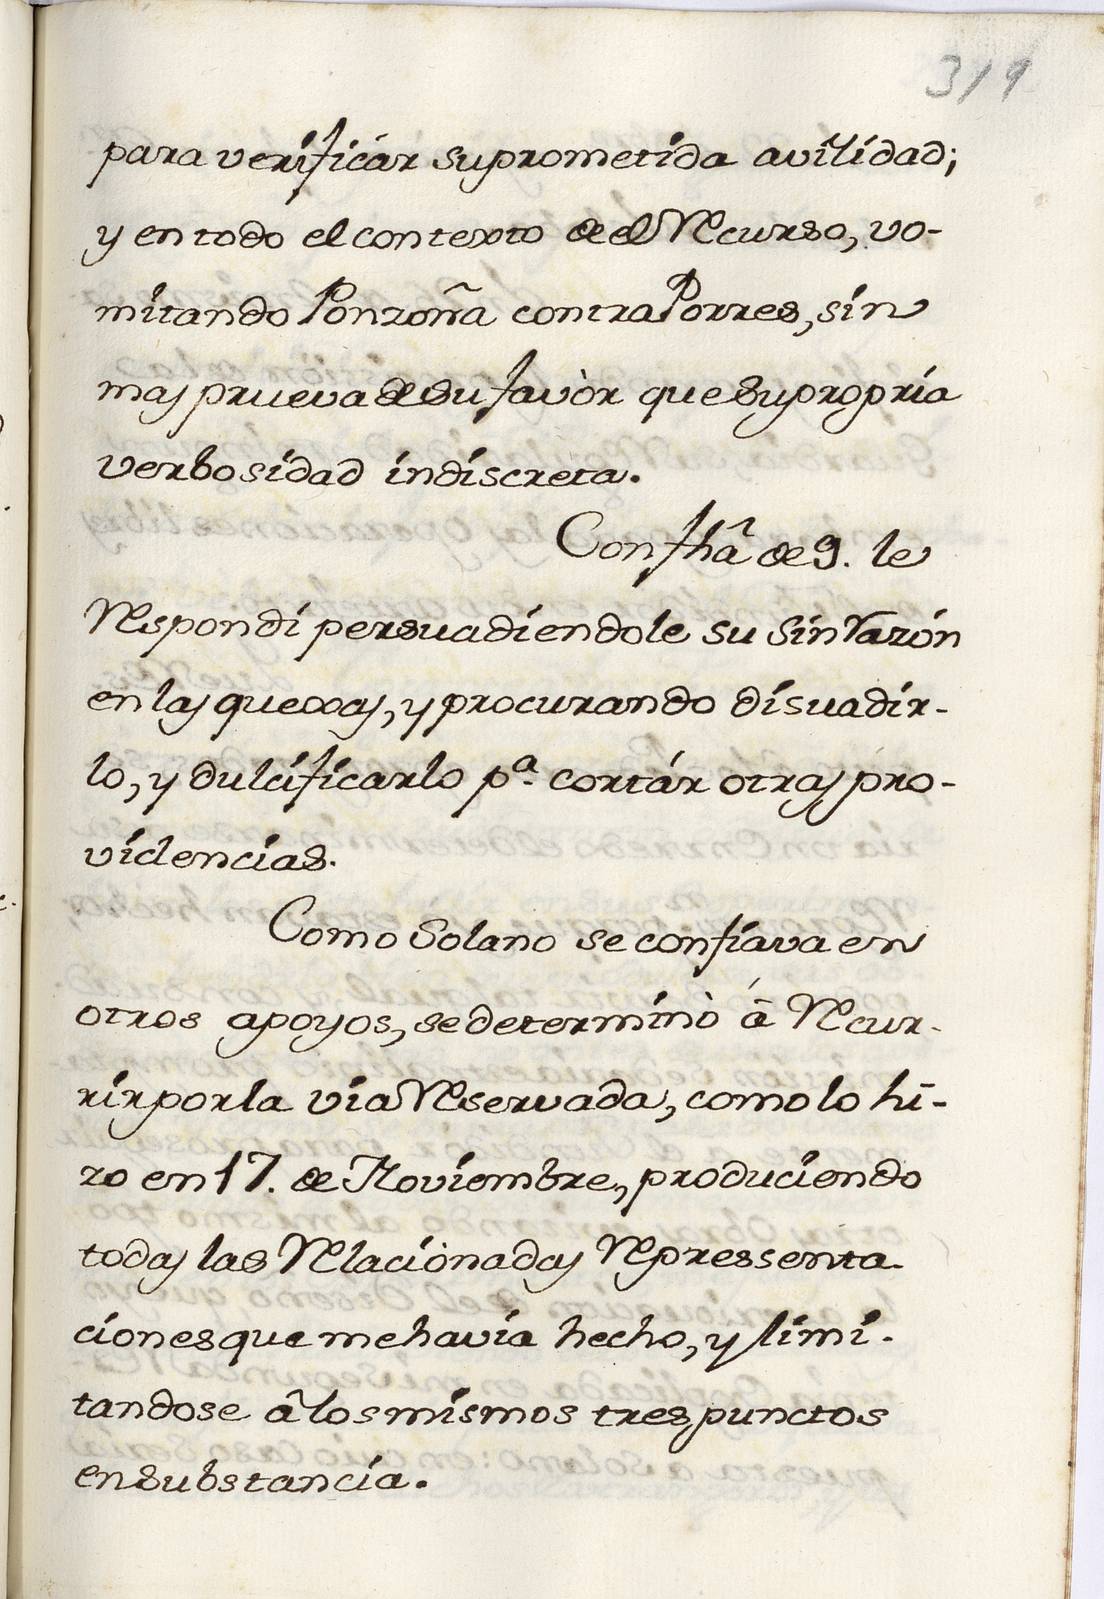 319
para verificár su prometida avilidad;
y en todo el contexto de el Recurso, vo-
mitando Ponzoña contra Porres, sin
mas prueva de su favòr que su propria
verbosidad indiscreta.
Con fhã de 9. le
Respondi persuadiendole su sin razón
en las quexas, y procurando disuadir-
lo, y dulcificarlo pª. cortár otras pro-
videncias.
Como Solano se confiava en
otros apoyos, se determinò à Recur-
rir por la via Reservada, como lo hi-
zo en 17. de Noviembre, produciendo
todas las Relacionadas Repressenta-
ciones que me havia hecho, y limi-
tandose â los mismos tres punctos
en substancia.